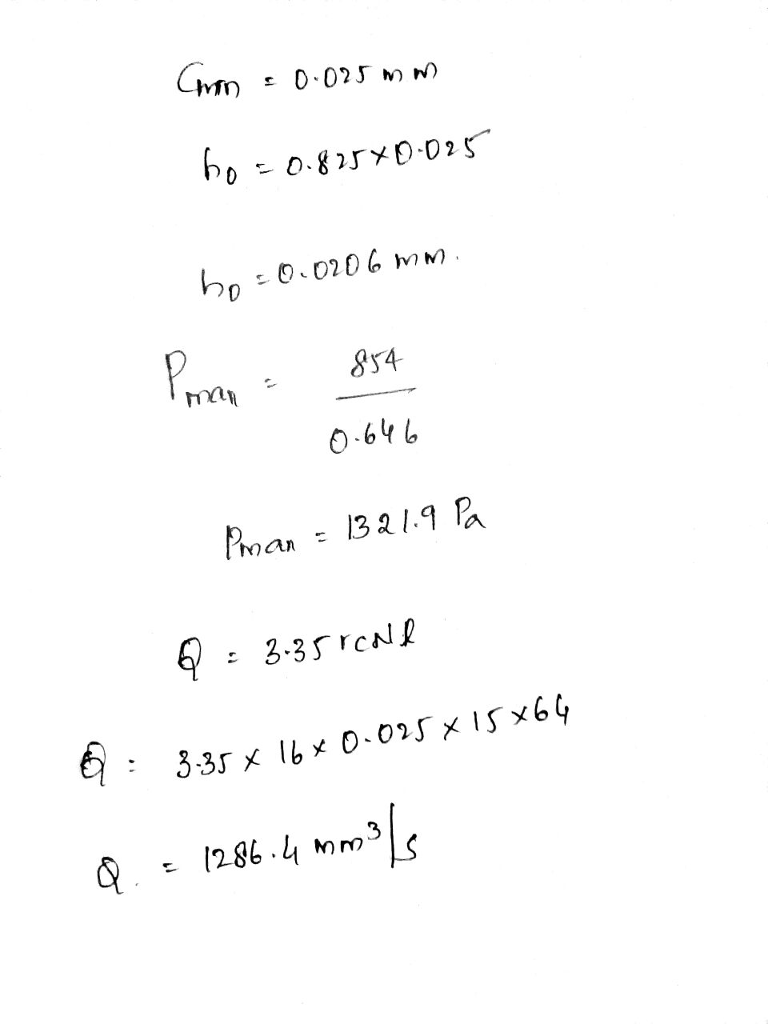 Cmin = 0.025 mm
h0 = 0.825×0.025
h0 = 0.0206 mm.
Pmax = 854 / 0.646
Pmax = 1321.9 Pa
Q = 3.35 rcNl
Q = 3.35 × 16 × 0.025 × 15 × 64
Q = 1286.4 mm³/s